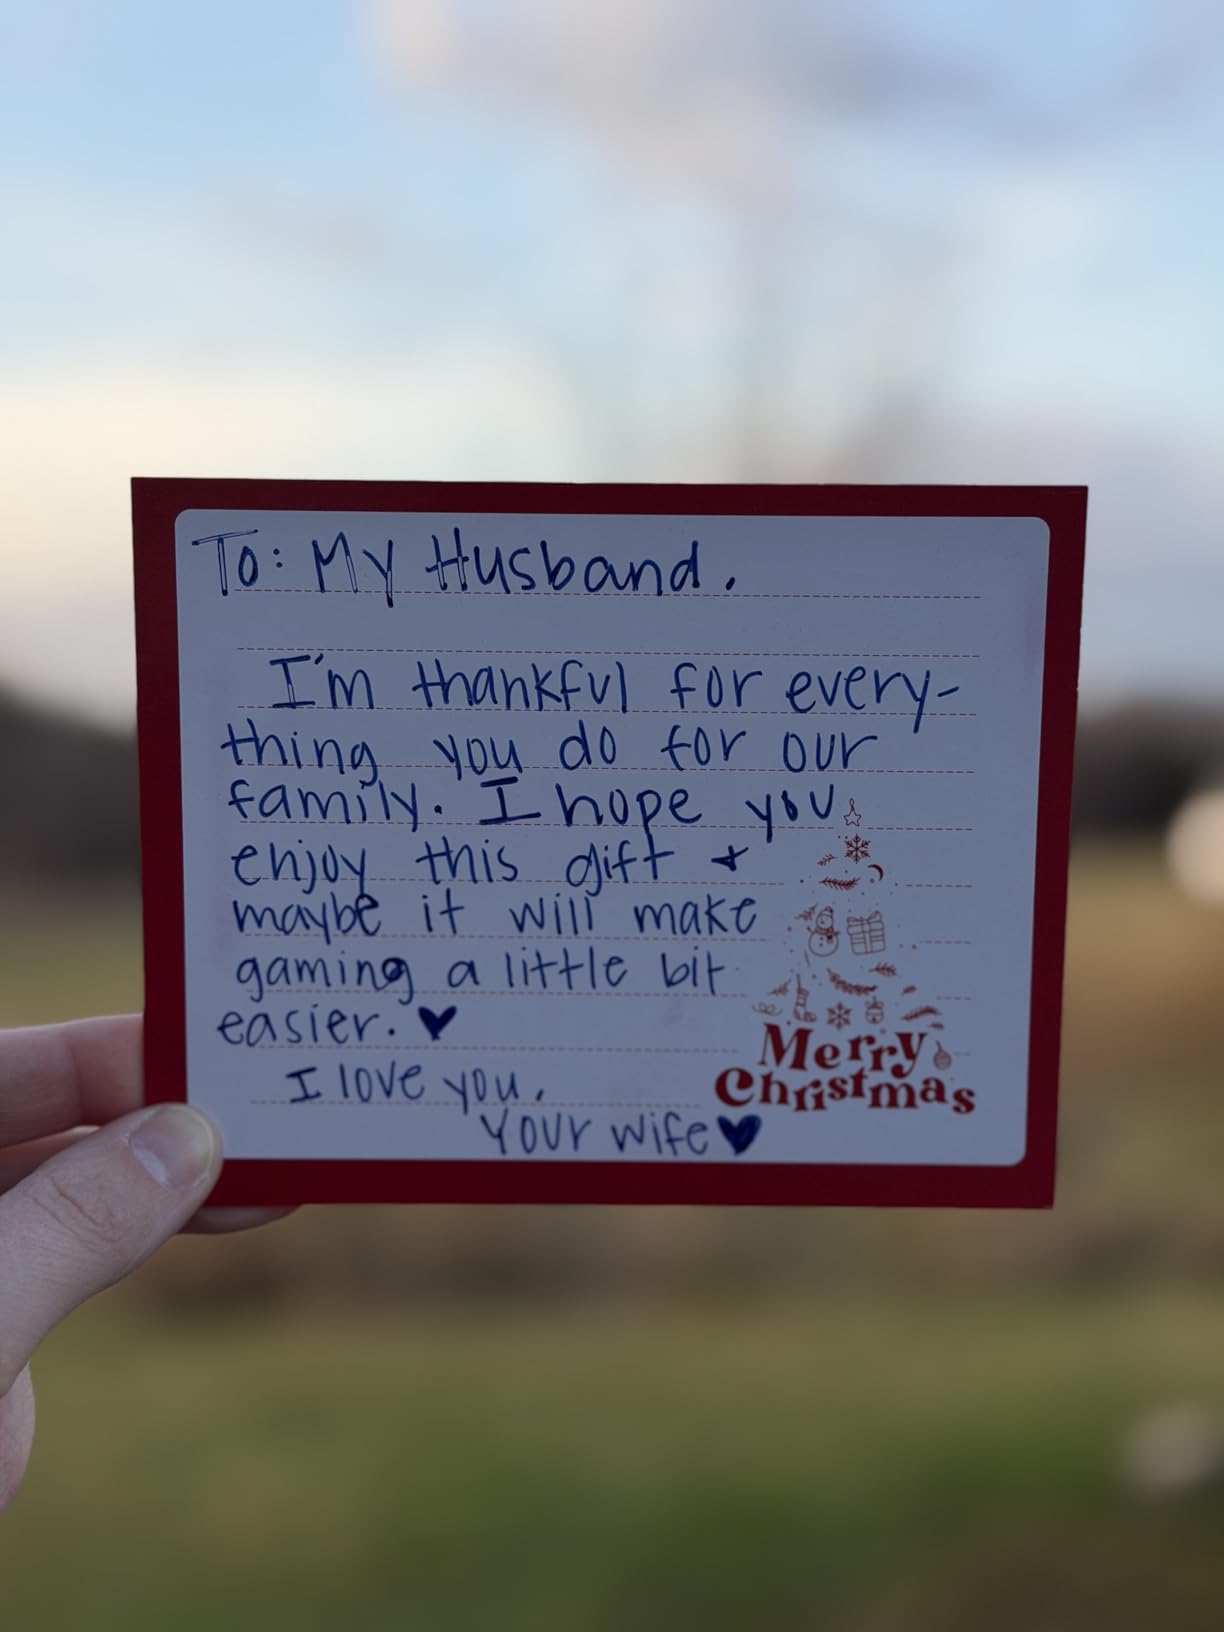 To: My Husband.
I'm thankful for every-
thing you do for our
family. I hope you
enjoy this gift +
maybe it will make
gaming a little bit
easier. ♥
I love you,
Your wife ♥
Merry
Christmas